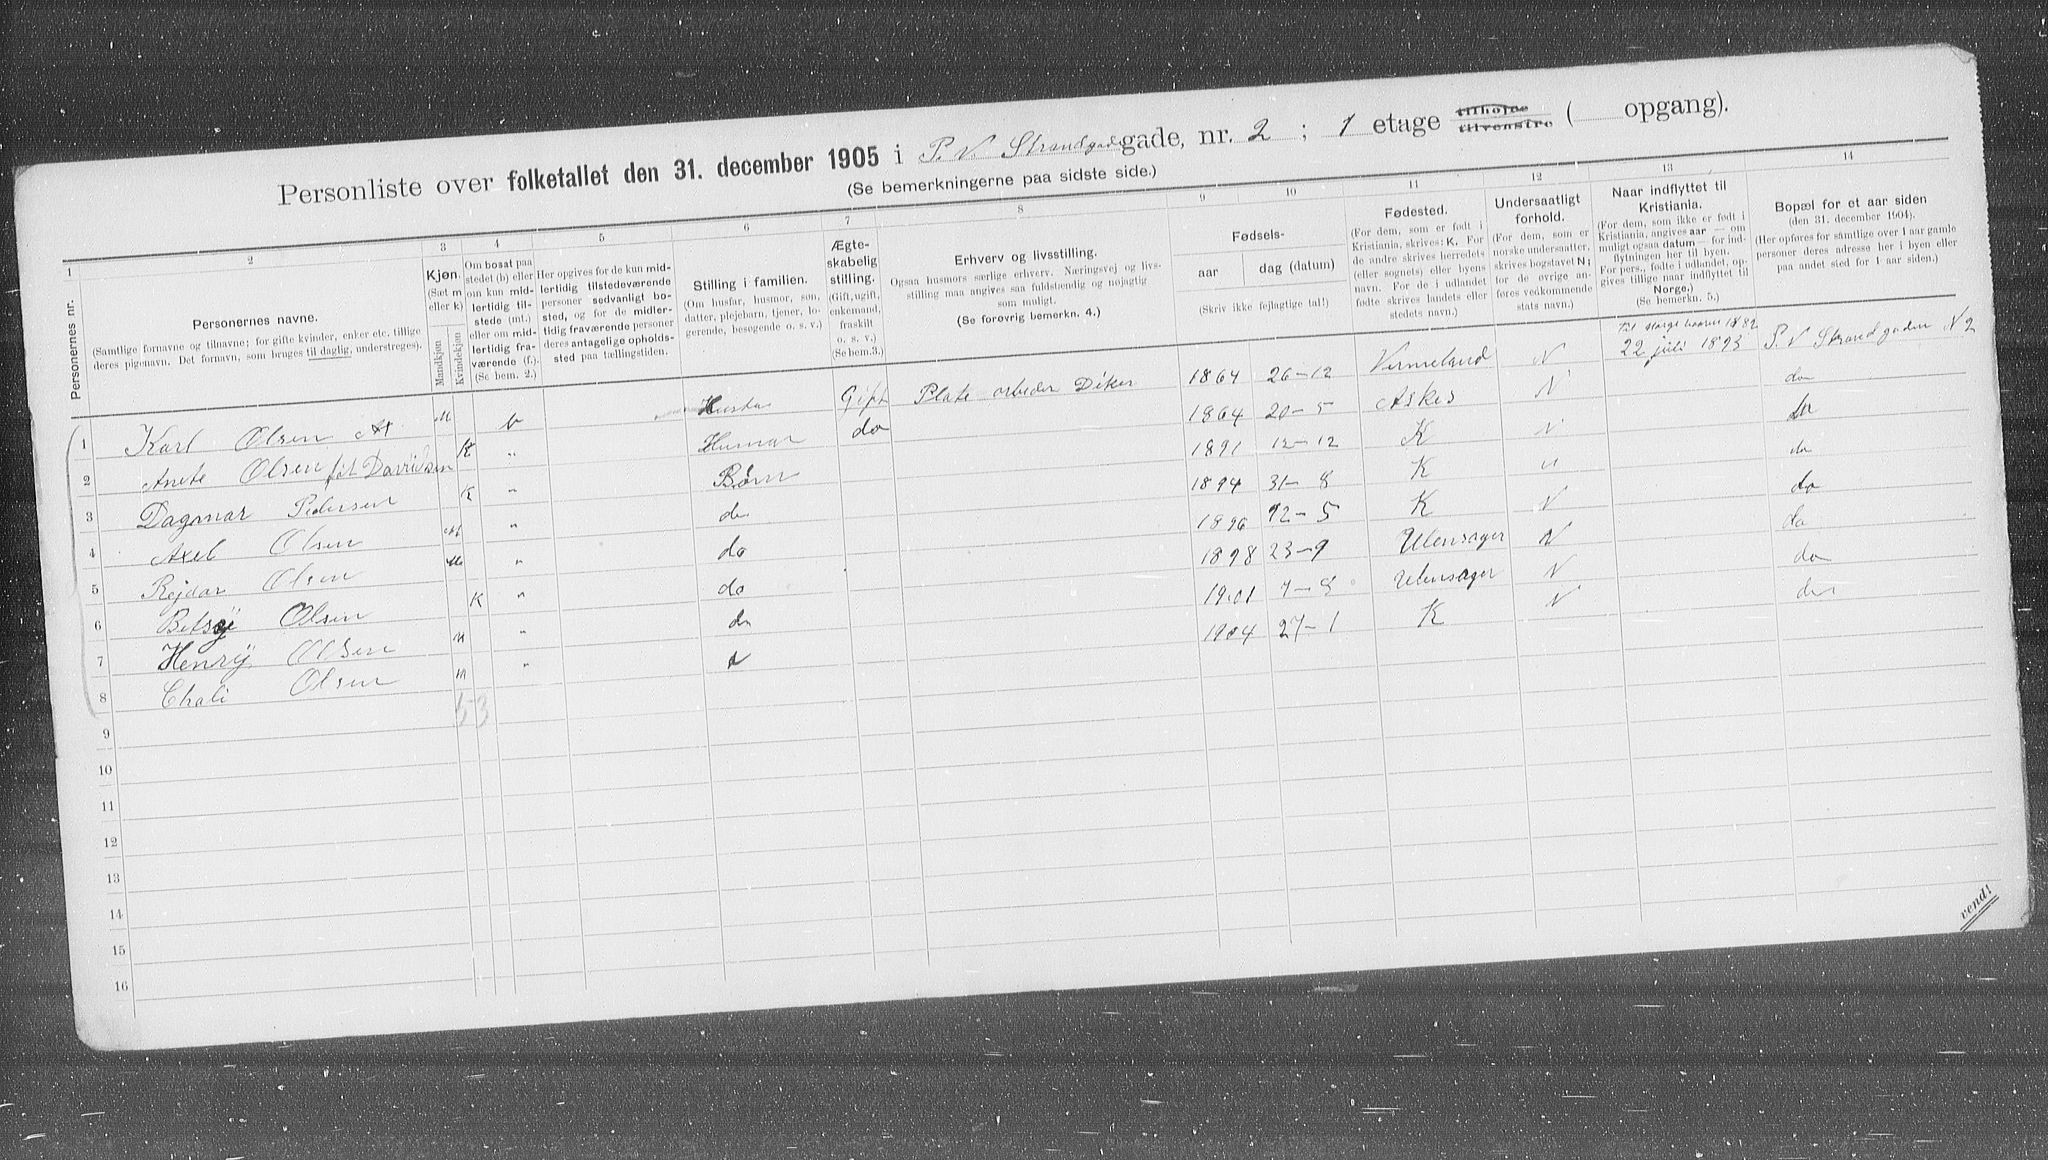 Personliste over folketallet den 31. december 1905 i P. N Strandgade gade, nr. 2 ; 1 etage tilhøire tilvenstre ( opgang).
(Se bemerkningerne paa sidste side.)
1 2 3 4 5 6 7 8 9 10 11 12 13 14
Personernes nr.
Personernes navne.
(Samtlige fornavne og tilnavne; for gifte kvinder, enker etc. tillige
deres pigenavn. Det fornavn, som bruges til daglig, understreges).
Kjøn.
(Sæt m
eller k)
Mandkjøn
Kvindekjøn
Om bosat paa
stedet (b) eller
om kun mid-
lertidig til-
stede (mt.)
eller om mid-
lertidig fra-
værende (f.).
(Se bem. 2.)
Her opgives for de kun mid-
lertidig tilstedeværende
personer sedvanligt bo-
sted, og for de midler-
tidig fraværende personer
deres antagelige opholds-
sted paa tællingstiden.
Stilling i familien.
(Om husfar, husmor, søn,
datter, plejebarn, tjener, lo-
gerende, besøgende o. s. v.)
Ægte-
skabelig
stilling.
(Gift, ugift,
enkemand,
fraskilt
o. s. v.)
(Se bem.3.)
Erhverv og livsstilling.
Ogsaa husmors særlige erhverv. Næringsvej og livs-
stilling maa angives saa fuldstændig og nøjagtig
som muligt.
(Se forøvrig bemerkn. 4.)
Fødsels-
aar
dag (datum)
(Skriv ikke fejlagtige tal!)
Fødested.
(For dem, som er født i
Kristiania, skrives: K. For
de andre skrives herredets
(eller sognets) eller byens
navn. For de i udlandet
fødte skrives landets eller
stedets navn.)
Undersaatligt
forhold.
(For dem, som er
norske undersaatter,
skrives bogstavet N;
for de øvrige an-
føres vedkommende
stats navn.)
Naar indflyttet til
Kristiania.
(For dem, som ikke er født i
Kristiania, angives aar — om
muligt ogsaa datum — for ind-
flytningen her til byen.
For pers., fødte i udlandet, op-
gives tillige naar indflyttet til
Norge.)
(Se bemerkn. 5.)
Bopæl for et aar siden
(den 31. december 1904).
(Her opføres for samtlige over 1 aar gamle
personer deres adresse her i byen eller
paa andet sted for 1 aar siden.)
1 Karl Olsen M b Gift Plate arbeder 1864 26-12 Vermeland N 1882 22 juli 1893 P. N Strandgaden N 2
2 Anete Olsen Davidsen K " Husmor do 1864 20-5 Asker N do
3 Dagmar Pedersen K " Børn 1891 12-12 K N do
4 Axel Olsen M " do 1894 31-8 K N do
5 Rejdar Olsen M " do 1896 12-5 K N do
6 Betsy Olsen K " do 1898 23-9 Ulensager N do
7 Henry Olsen M " do 1901 7-8 Ulensager N do
8 Chali Olsen M " 1904 27-1 K N do
53
9
10
11
12
13
14
15
16
vend!